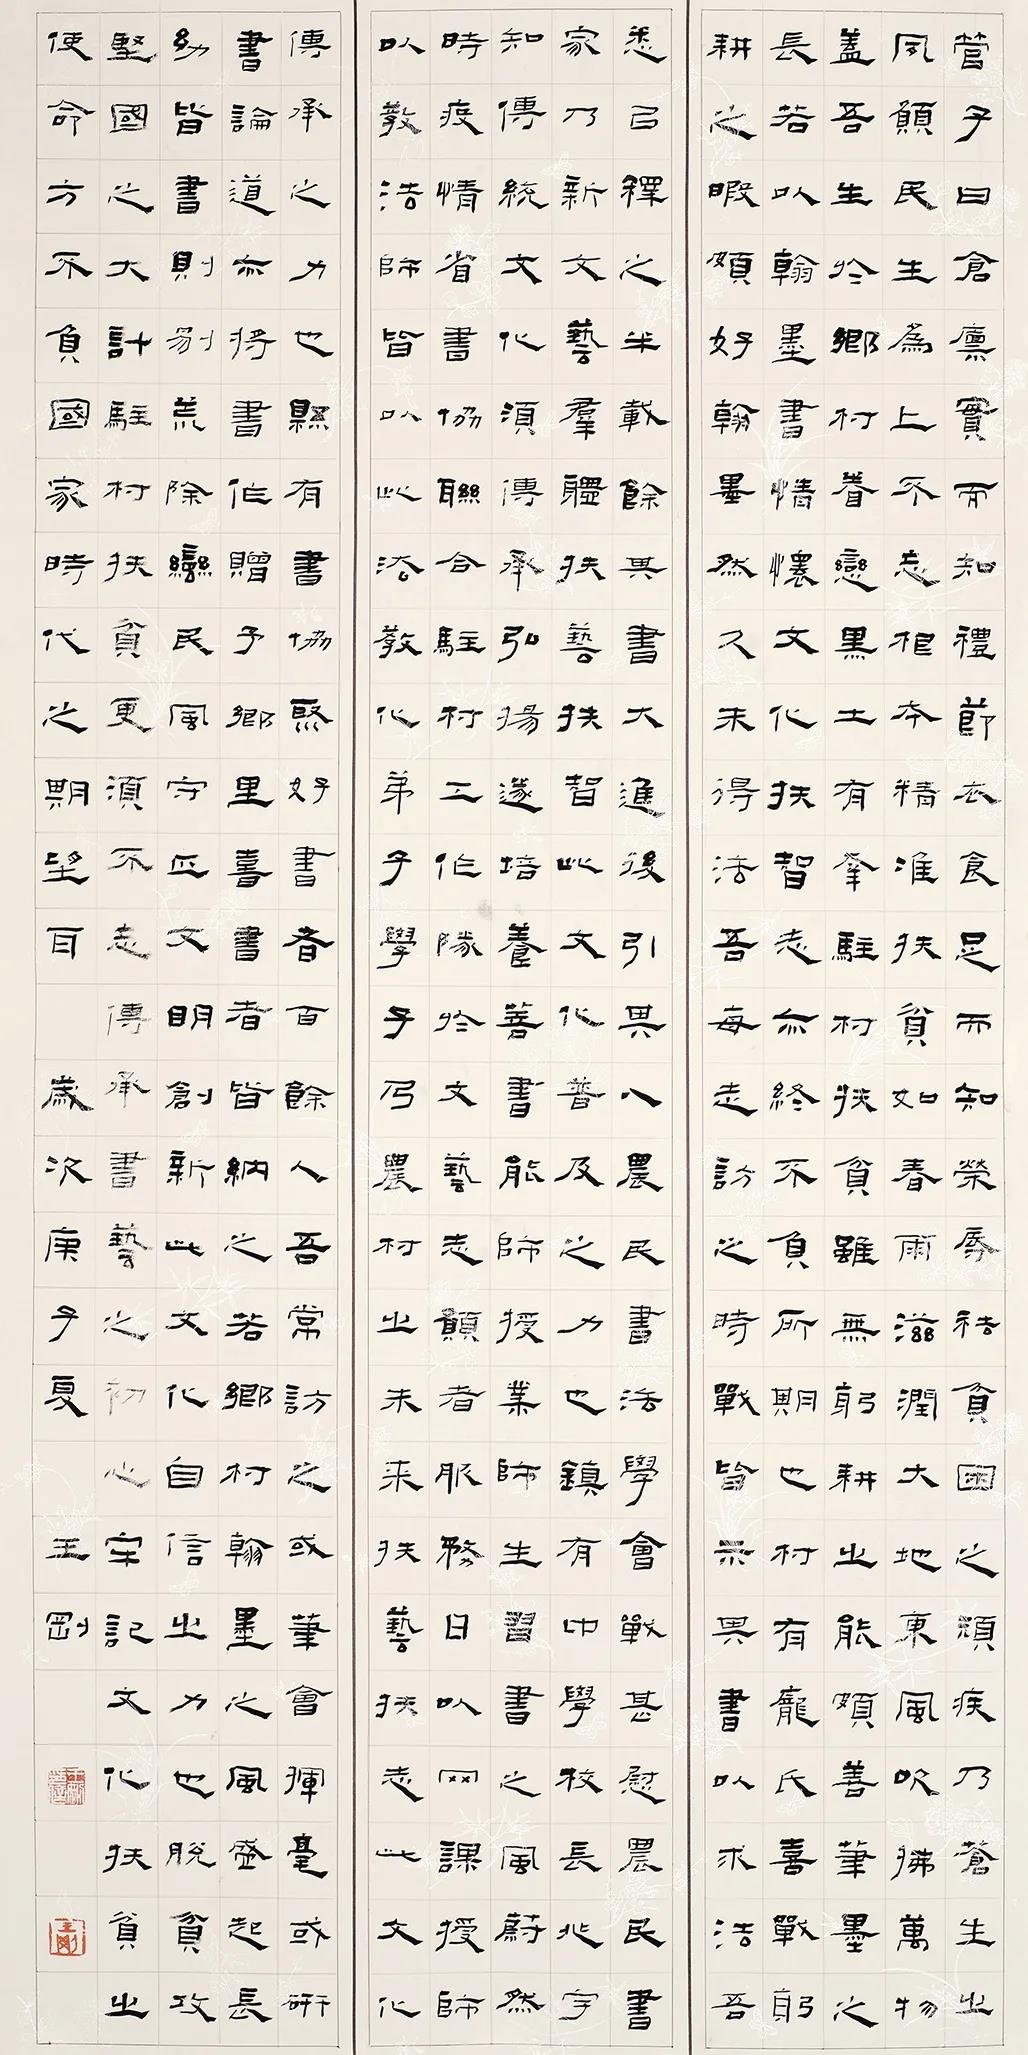 管子曰倉廩實而知禮節衣食足而知榮辱祛貧困之頑疾乃蒼生之
夙願民生為上不忘根本精准扶貧如春雨滋潤大地東風吹拂萬物
蓋吾生於鄉村眷戀黑土有幸駐村扶貧雖無躬耕之能頗善筆墨之
長若以翰墨書情懷文化扶智志亦終不負所期也村有龐氏喜戰躬
耕之暇頗好翰墨然久未得法吾每走訪之時戰皆示其書以求法吾
悉己釋之半載餘其書大進後引其入農民書法學會戰甚慰農民書
家乃新文藝群體扶藝扶智此文化普及之力也鎮有中學校長兆宇
知傳統文化須傳承弘揚遂培養善書能師授業師生習書之風蔚然
時疫情省書協聯合駐村工作隊於文藝志願者服務日以网課授師
以教浩師皆以此法教化弟子學子乃農村之未來扶藝扶志此文化
傳承之力也縣有書協煕好書者百餘人吾常訪之或筆會揮毫或研
書論道亦將書作贈予鄉里喜書者皆納之若鄉村翰墨之風盛起長
幼皆書則剔荒除蠻民風守正文明創新此文化自信之力也脫貧攻
堅國之大計駐村扶貧更須不忘傳承書藝之初心宋記文化扶貧之
使命方不負國家時代之期望耳 歲次庚子夏 王剛